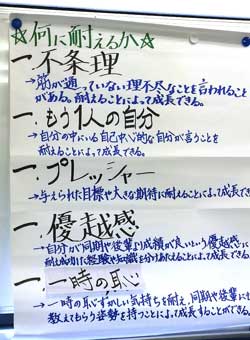 ☆何に耐えるか☆
一.不条理
→筋が通っていない理不尽なことを言われること
がある。耐えることによって成長できる。
一.もう1人の自分
→自分の中にいる自己中心的な自分が言うことを
耐えることによって成長できる。
一.プレッシャー
→与えられた目標や大きな期待に耐えることによって成長でき
一.優越感
→自分が同期や後輩より成績が良いという優越感に
耐え成功した経験や知識を分けあたえることによって成長でき
一.一時の恥
→一時の恥ずかしい気持ちを耐え、同期や後輩に
教えてもらう姿勢を持つことによって成長することができる。